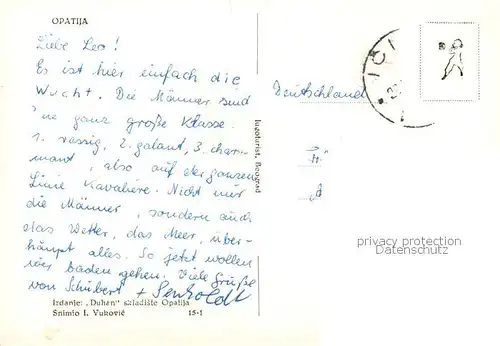 OPATIJA
Liebe Leo!
Es ist hier einfach die
Wucht. Die Männer sind
'ne ganz große Klasse.
1. rassig, 2. galant, 3. char-
mant, also auf der ganzen
Linie Kavaliere. Nicht nur
die Männer, sondern auch
das Wetter, das Meer, über-
haupt alles. So jetzt wollen
wir baden gehen. Viele Grüße
von Schubert +
Izdanje: „Duhan" skladište Opatija
Snimio I. Vuković 15-1
Jugoturist, Beograd
Deutschland
privacy protection
Datenschutz